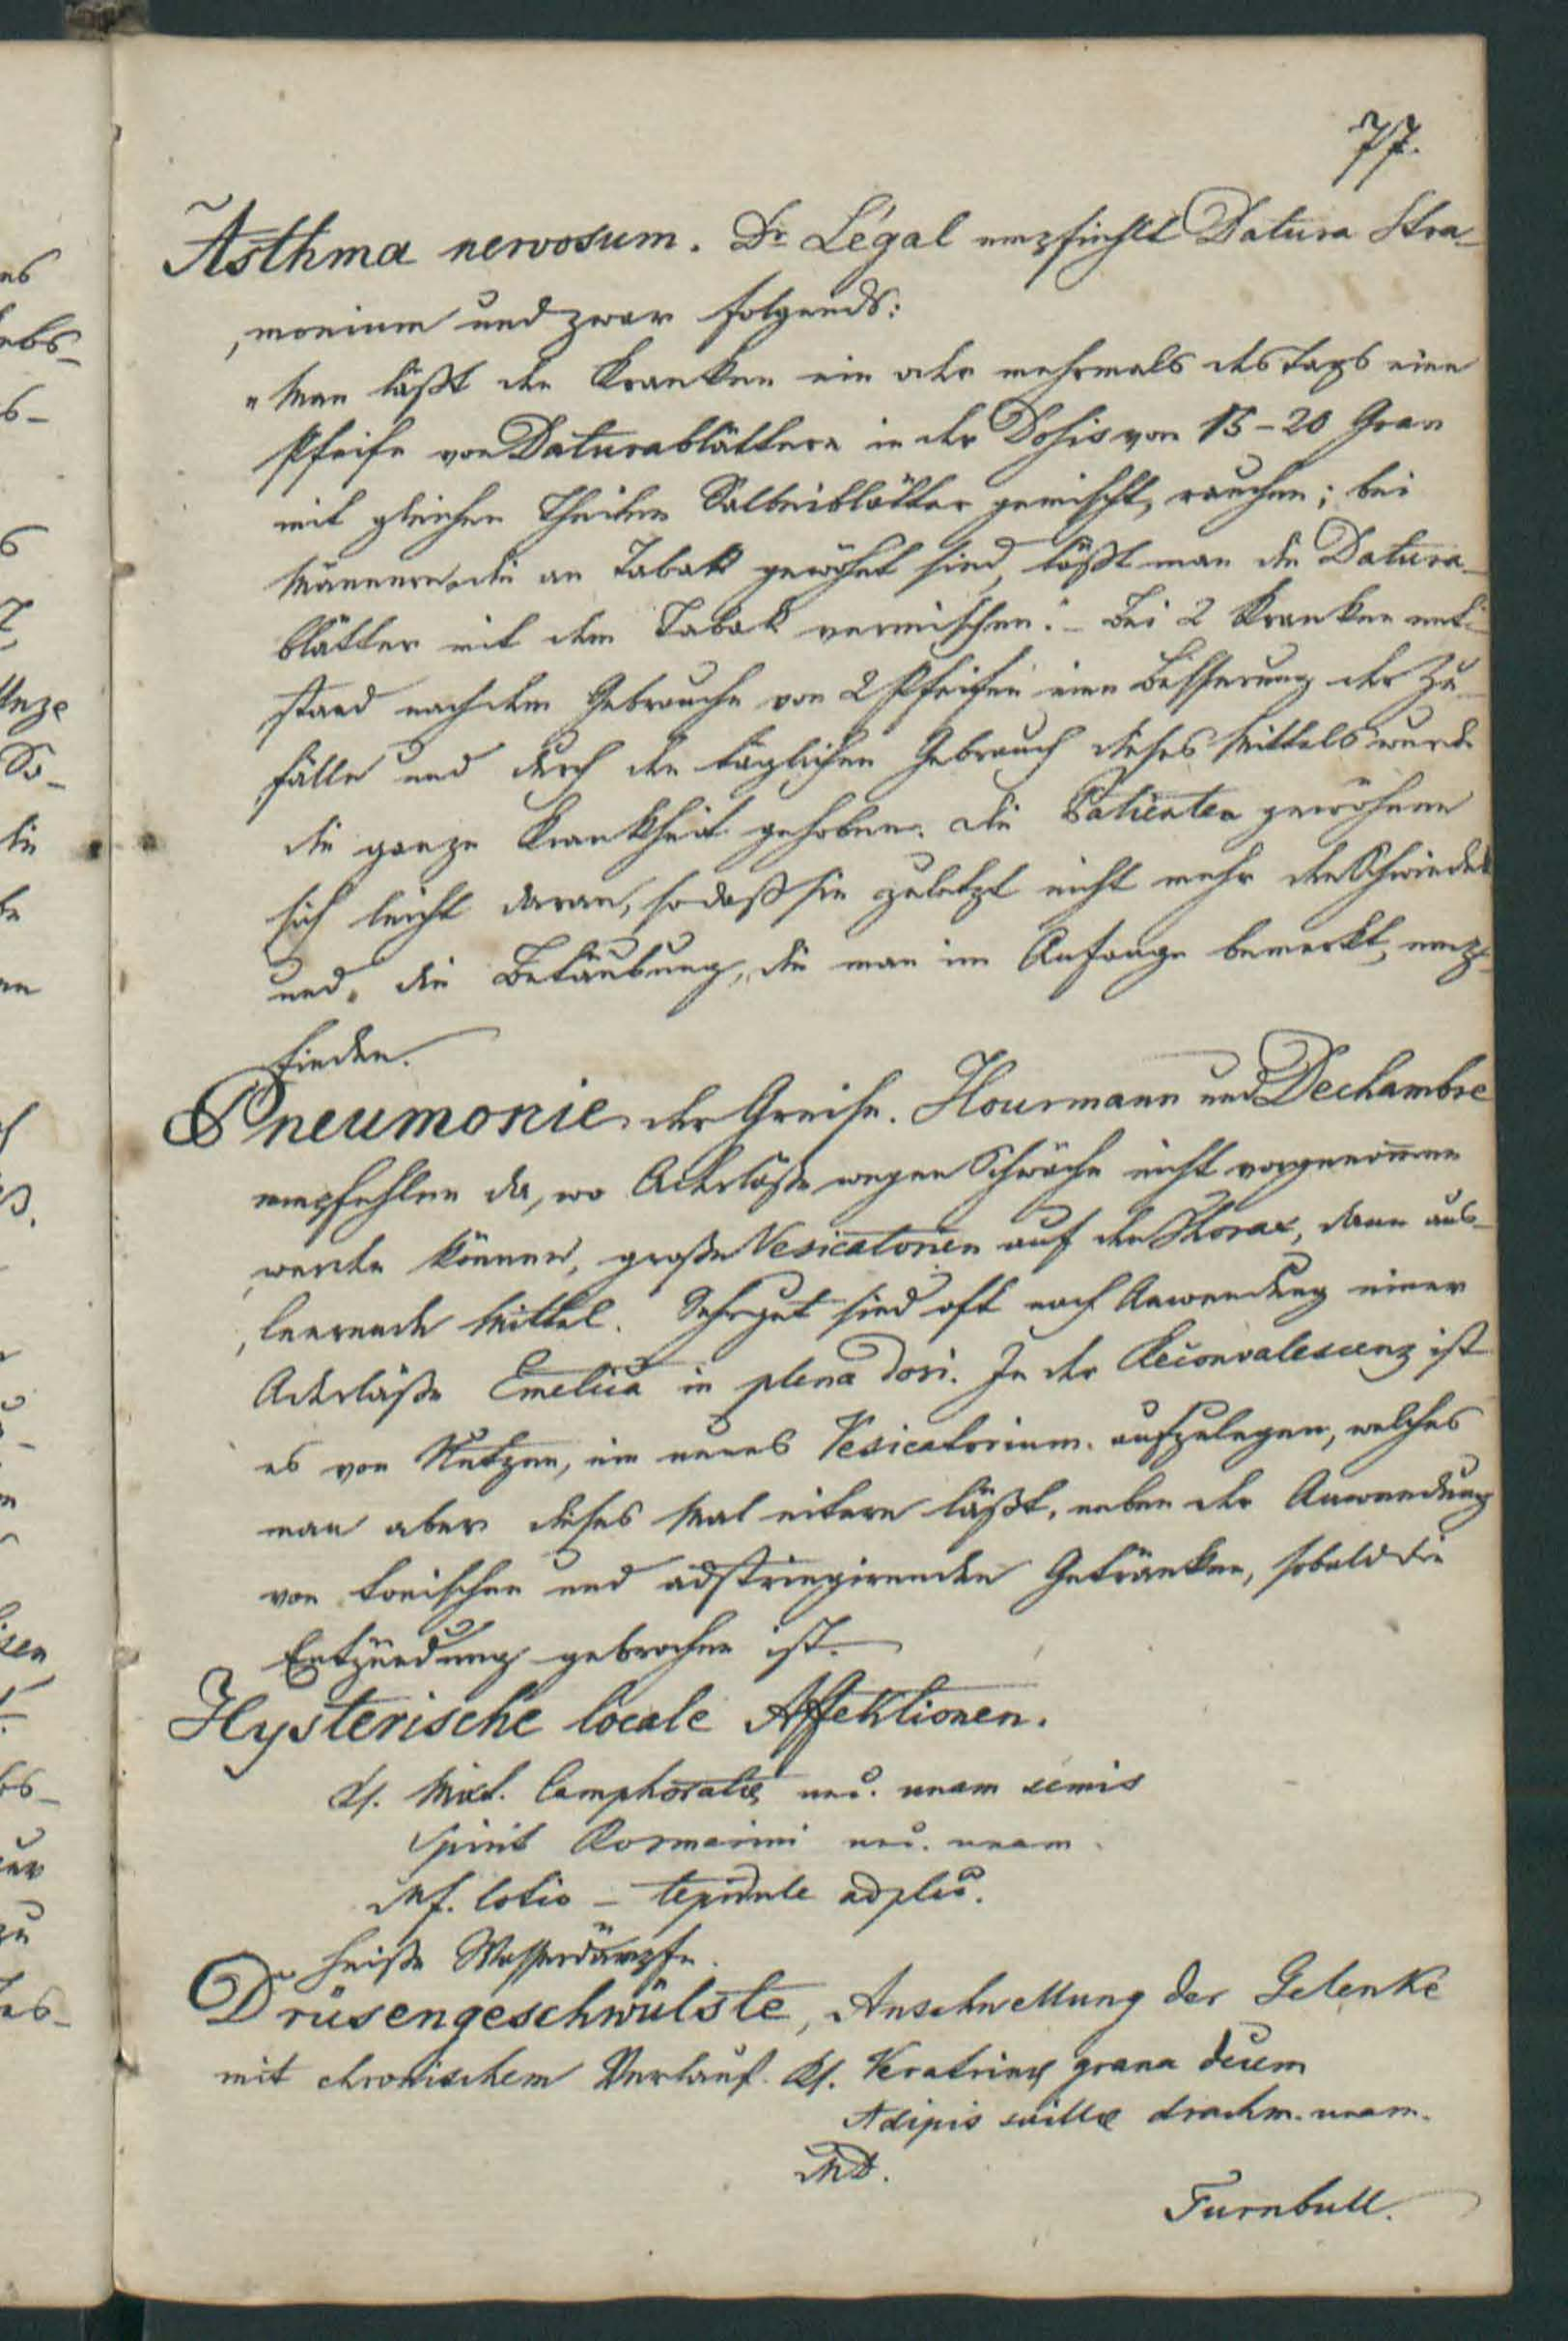 77.
Asthma nervosum. Dr Légal empfiehlt Datura Stra-
monium und zwar folgends:
"Man läßt den Kranken ein oder mehrmals des Tags eine
Pfeife von Daturablättern in der Dosis von 15-20 Gran
mit gleichen Theilen Salbeiblätter gemischt, rauchen; bei
Männern die an Tabak gewöhnt sind, läßt man die Datura-
blätter mit dem Tabak vermischen." - Bei 2 Kranken ent-
stand nach dem Gebrauche von 2 Pfeifen eine Besserung der Zu-
fälle und durch den täglichen Gebrauch dieses Mittels wurde
die ganze Krankheit gehoben. Die Patienten gewöhnen
sich leicht daran, so daß sie zuletzt nicht mehr den Schwindel
und die Betäubung, die man im Anfange bemerkt, emp-
finden.
Pneumonie der Greise. Hourmann und Dechambre
empfehlen da, wo Aderläße wegen Schwäche nicht vorgenom̄en
werden können, große Vesicatorien auf den Thorax, dann aus-
leerende Mittel. Sehr gut sind oft nach Anwendung einer
Aderläße Emetica in plena dosi. In der Reconvalescenz ist
es von Nutzen, ein neues Vesicatorium aufzulegen, welches
man aber dieses Mal eitern läßt, neben der Anwendung
von tonischen und adstringirenden Getränken, sobald die
Entzündung gebrochen ist.
Hysterische locale Affektionen.
Rf. Mixt. Camphoratæ unc. unam semis
Spirit Rosmarini unc. unam.
Mf. lotio - tepide adplic.
heiße Wasserdämpfe.
Drüsengeschwülste, Anschwellung der Gelenke
mit chronischem Verlauf. Rf. Veratrinæ grana decem
Adipis suillæ drachm. unam.
MD.
Turnbull.